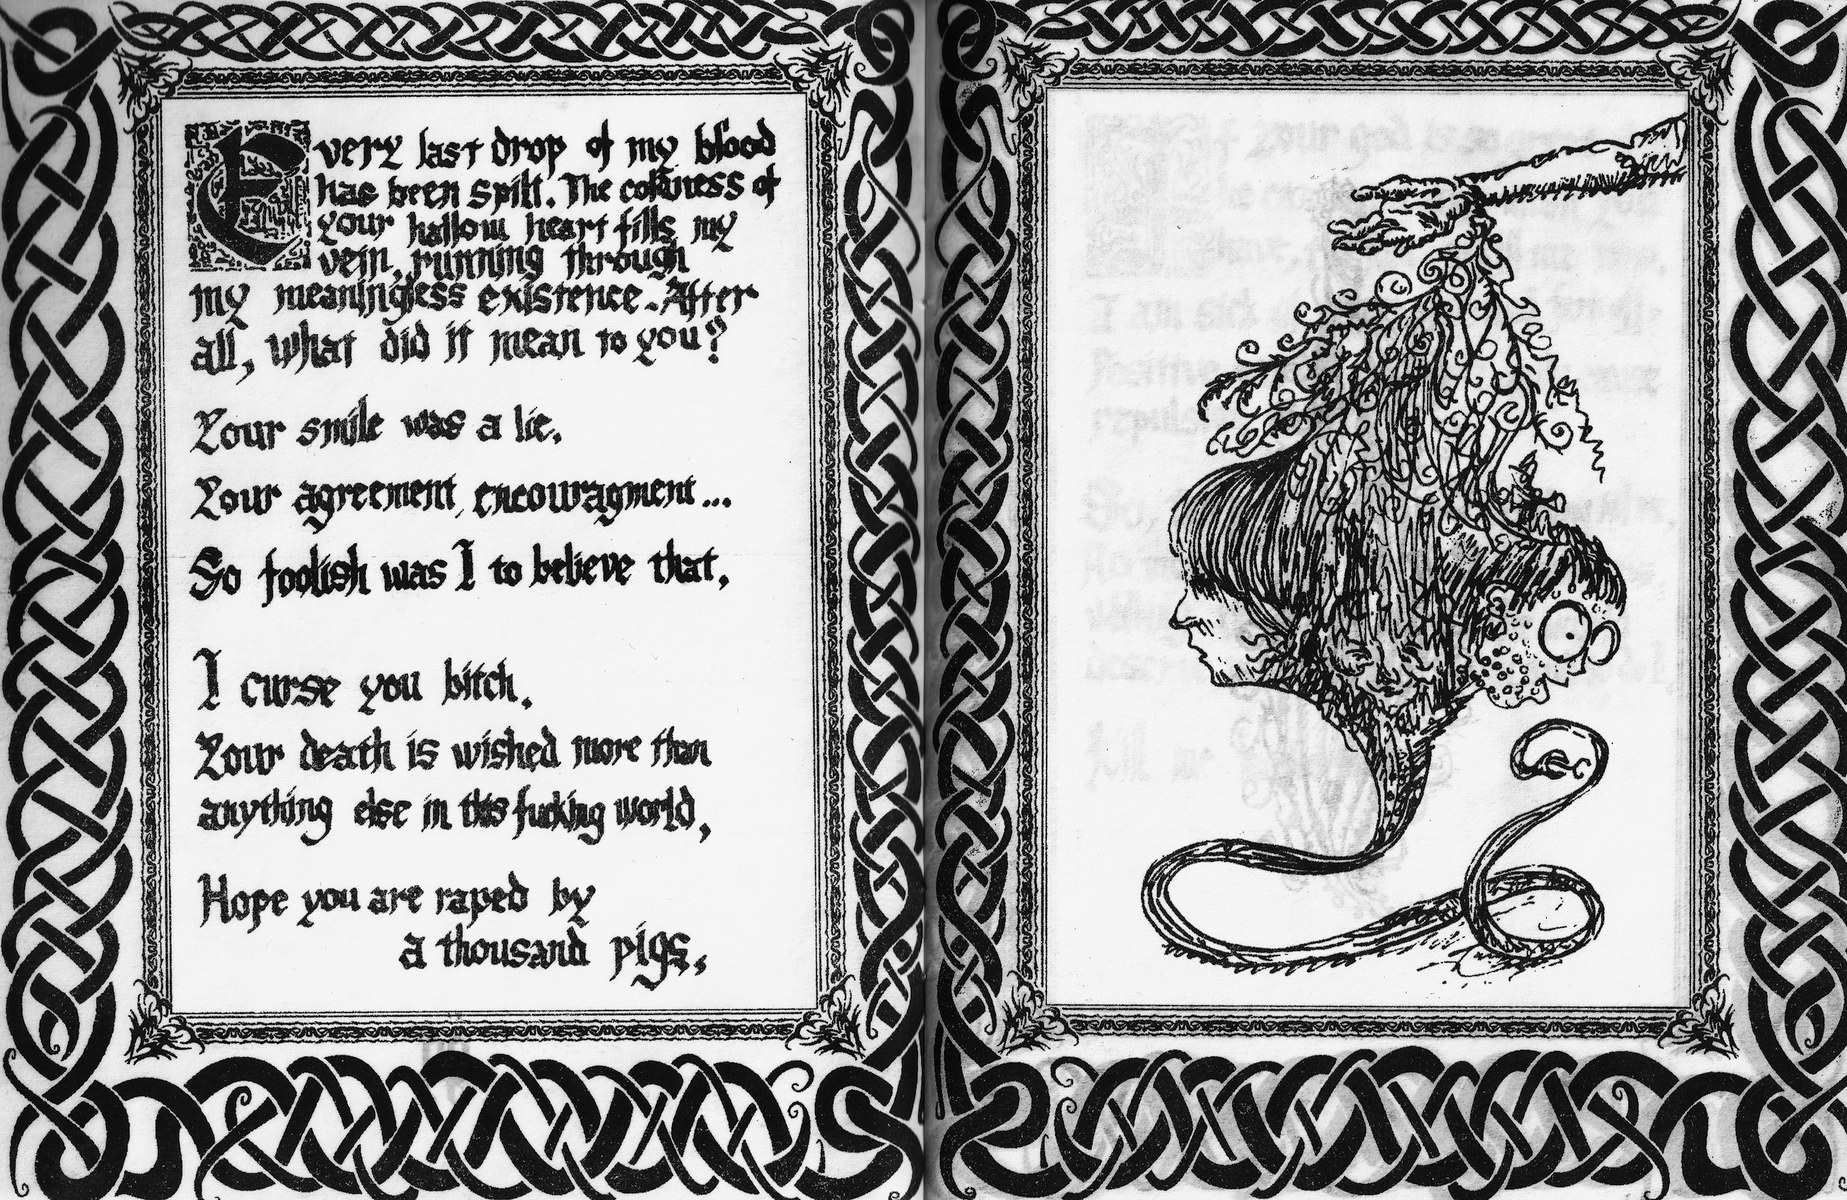 Every last drop of my blood
has been spilt. The coldness of
your hallow heart fills my
vein, running through
my meaningless existence. After
all, what did it mean to you?
Your smile was a lie.
Your agreement, encouragment...
So foolish was I to believe that,
I curse you bitch.
Your death is wished more than
anything else in this fucking world,
Hope you are raped by
a thousand pigs.